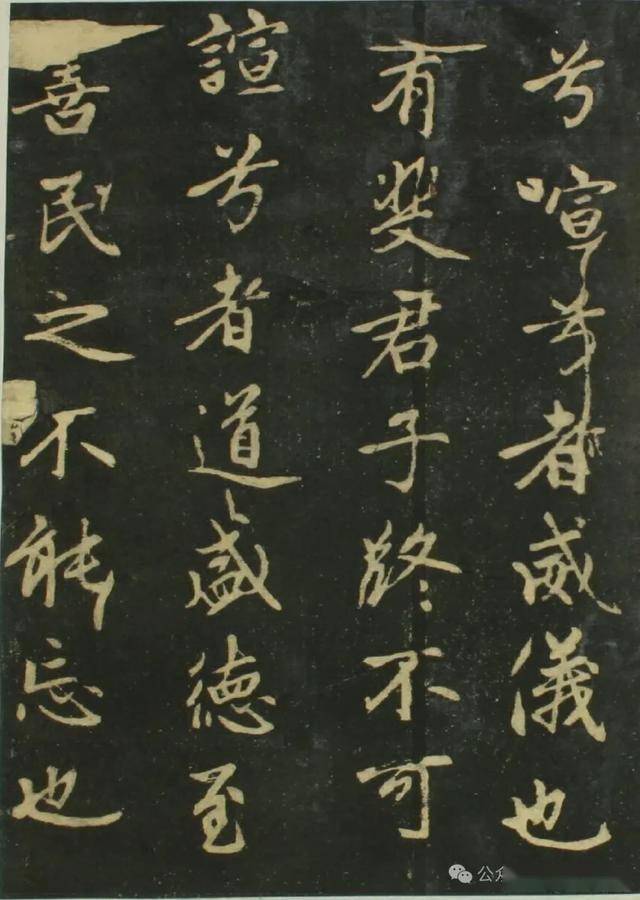 兮喧兮者威儀也
有斐君子終不可
諠兮者道盛德至
善民之不能忘也
公众